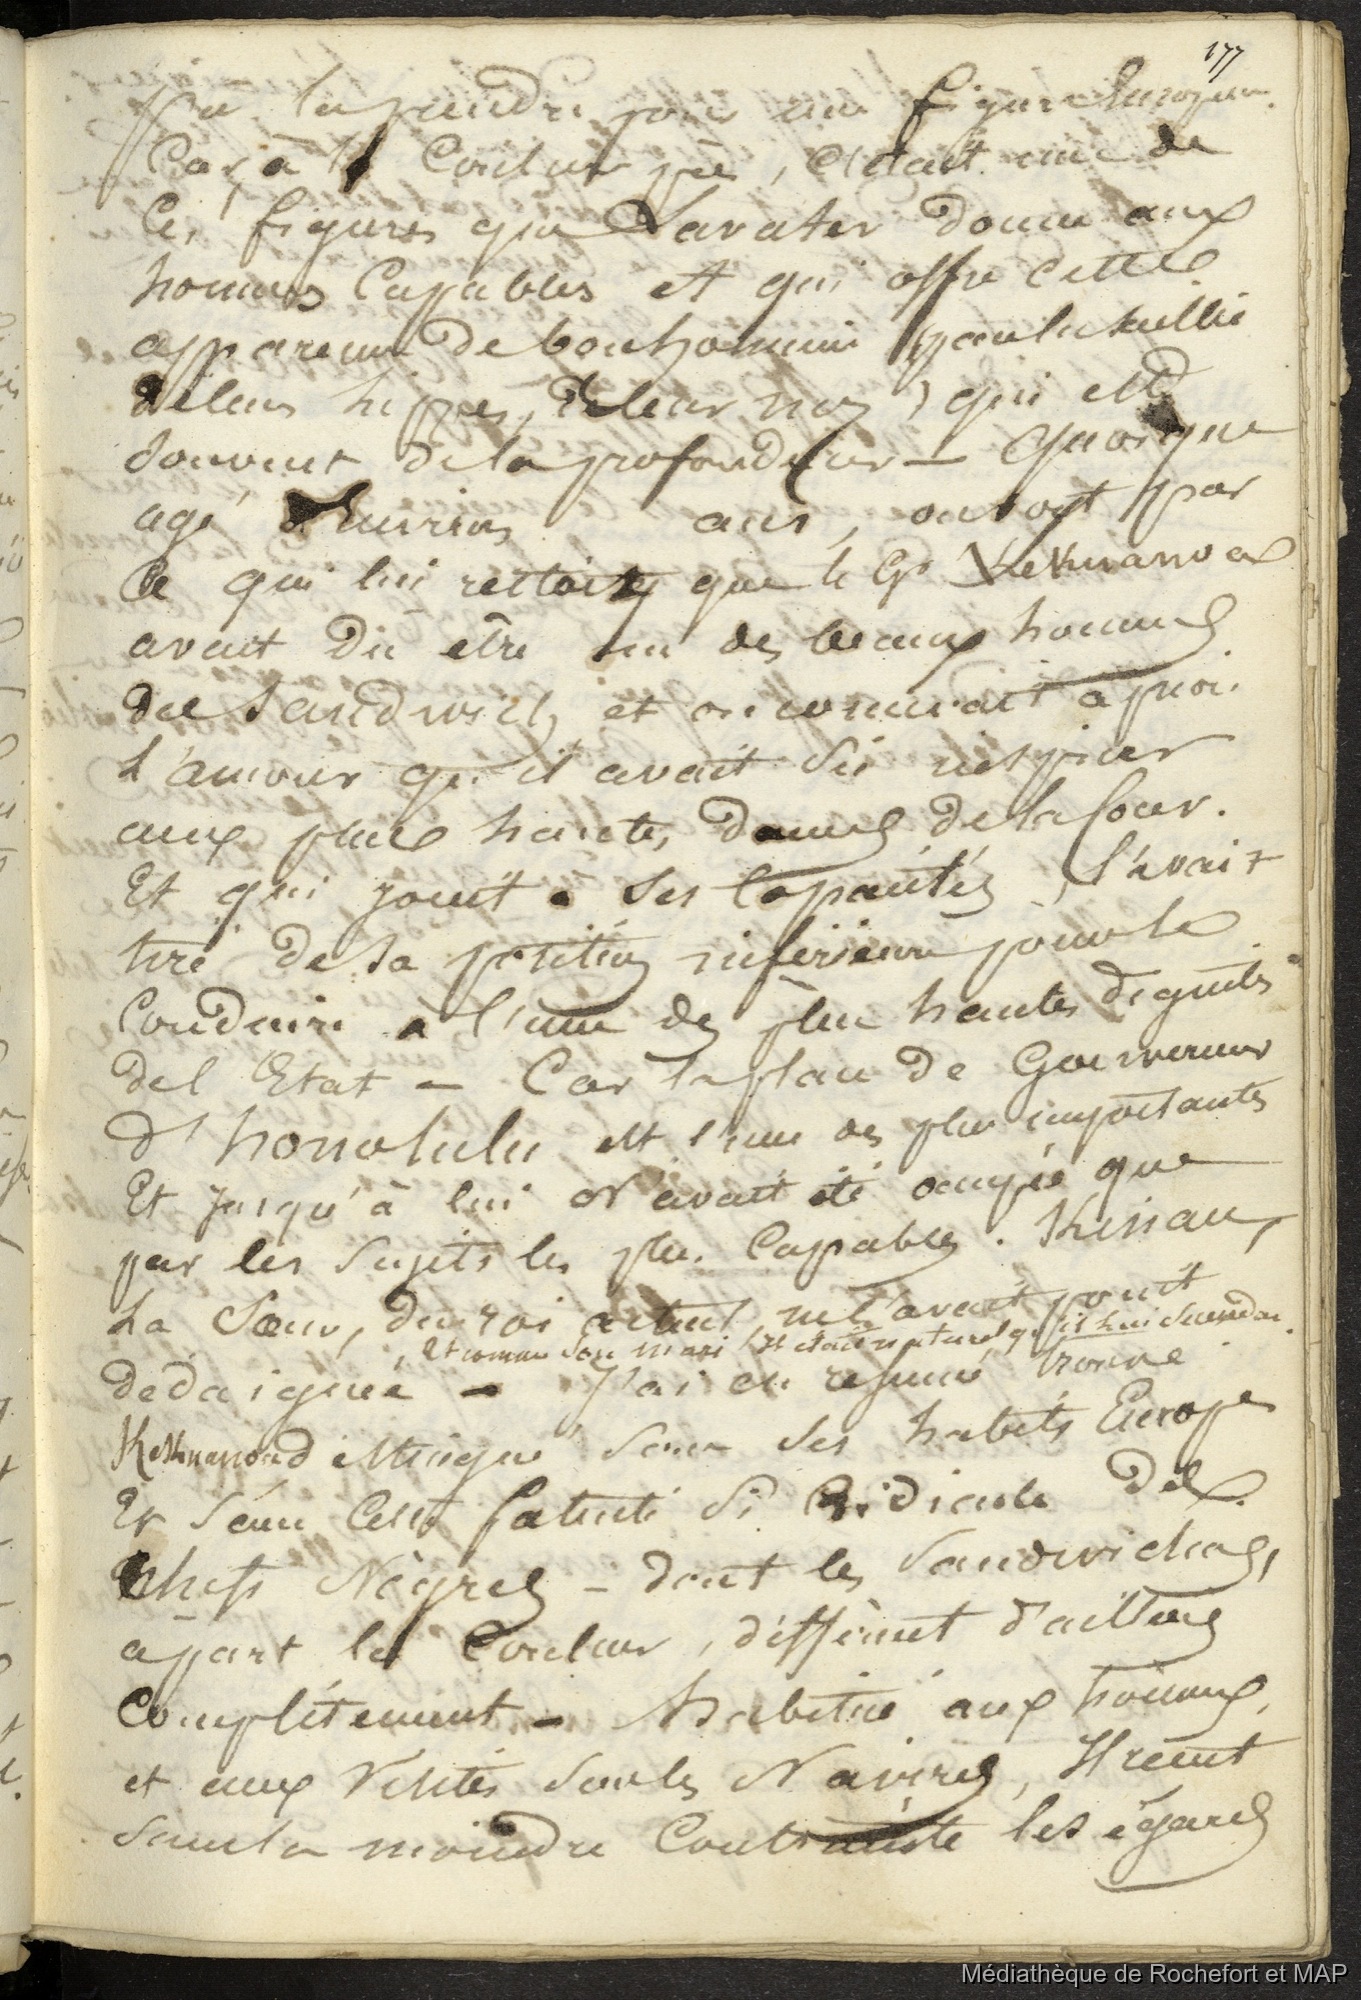 177
pu la prendre pour une figure Européenne.
Car, à la Couleur près, C'était une de
Ces figures que Lavater donne aux
hommes Capables et qui offre cette
apparence de bonhommie par la
de leurs lippes, de leur nez, qui
souvent de la profondeur — Quoique
agé d'environ ans, on voyt par
Ce qui lui restait que le Gr Kekuanaoa
avait Dû être un des beaux hommes
des Sandwich, et on concevait
L'amour qu'il avait Su inspirer
aux plus hautes Dames de la Cour.
Et qui joint à Ses Capacités, l'avait
tiré De Sa position inférieure pour le
Conduire à l'une des plus hautes dignités
de l'Etat — Car la place De Gouverneur
D'honolulu est l'une des plus importantes
Et Jusqu'à lui N'avait été occupée que
par les Sujets les plus Capables. Kinau,
La Sœur, du roi actuel, ne l'avait point
, Et comme Son mari, Il était naturel qu'il lui Succedat.
dédaignée — J'ai en résumé trouvé
Kekuanoad distingué Sous Ses habits Europ
Et Sans Cette fatuité Si Ridicule Des
Chefs Nègres — dont les Sandwichois,
apart la Couleur, diffèrent d'ailleurs
Complétement — Habitué aux honneurs,
et aux Visites Sur les Navires, Il reçut
Sans la moindre Contrainte les égards
Médiathèque de Rochefort et MAP